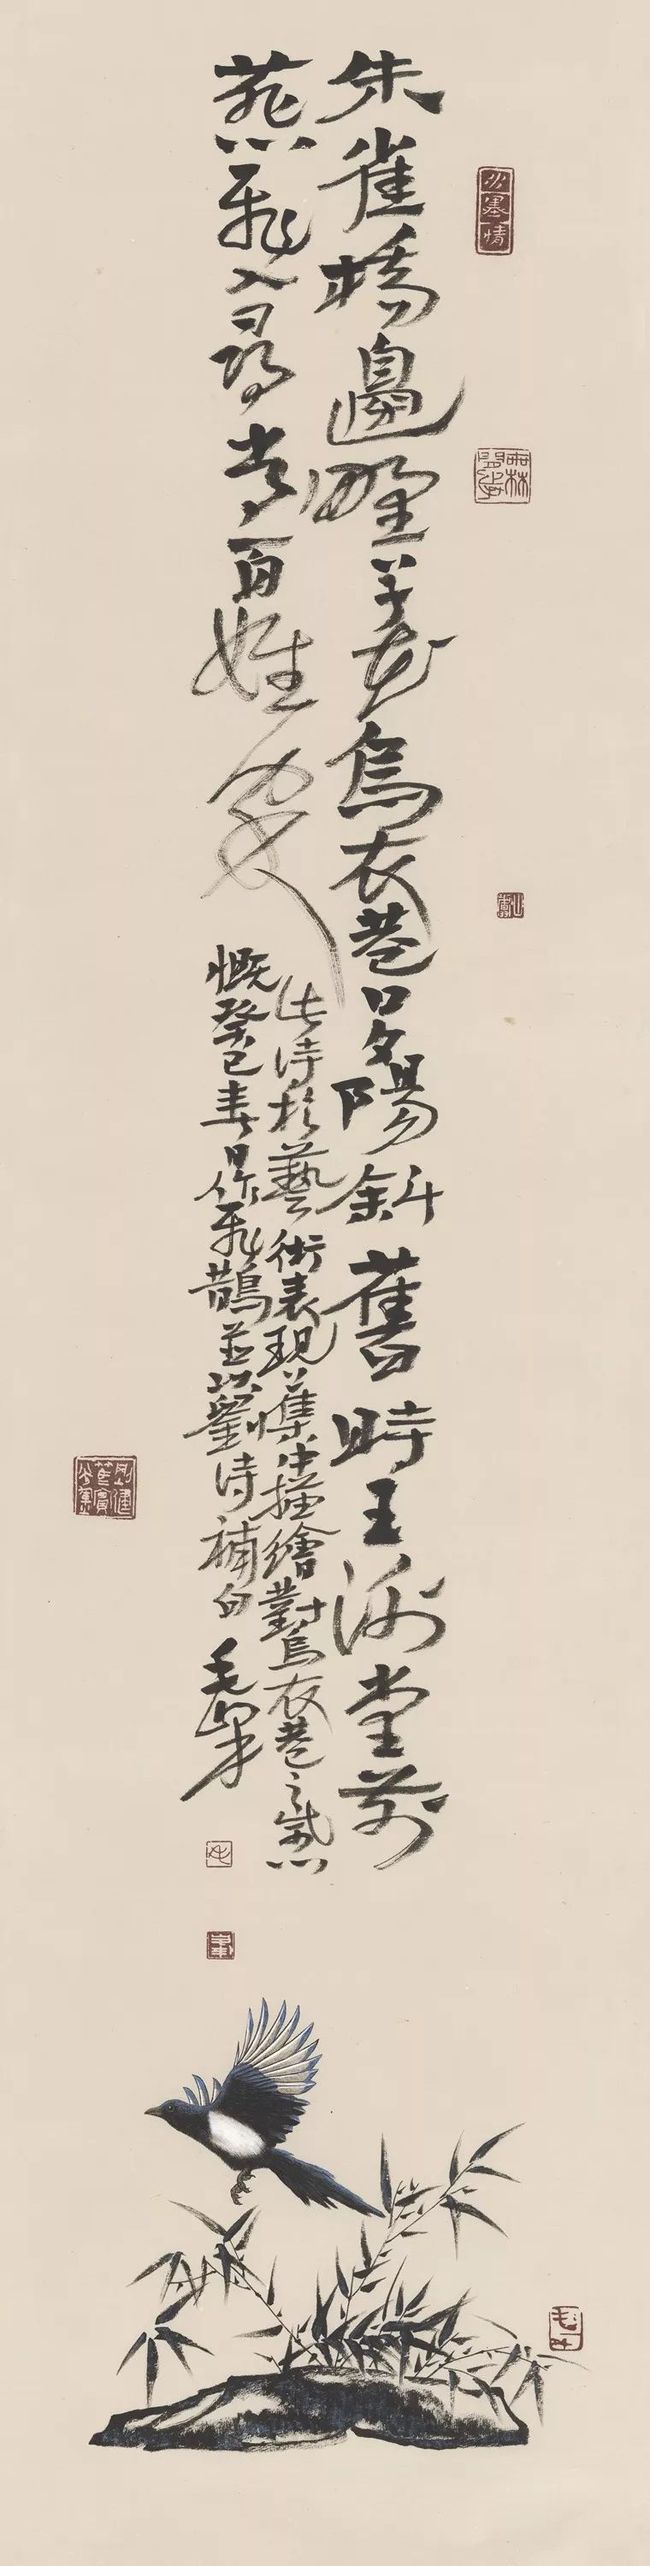 朱雀橋邊野草花烏衣巷口夕陽斜舊時王謝堂前
燕飛入尋常百姓家
此詩於藝術表現慬中描繪對烏衣巷之感
慨癸巳春日作飛鵲並以劉詩補白